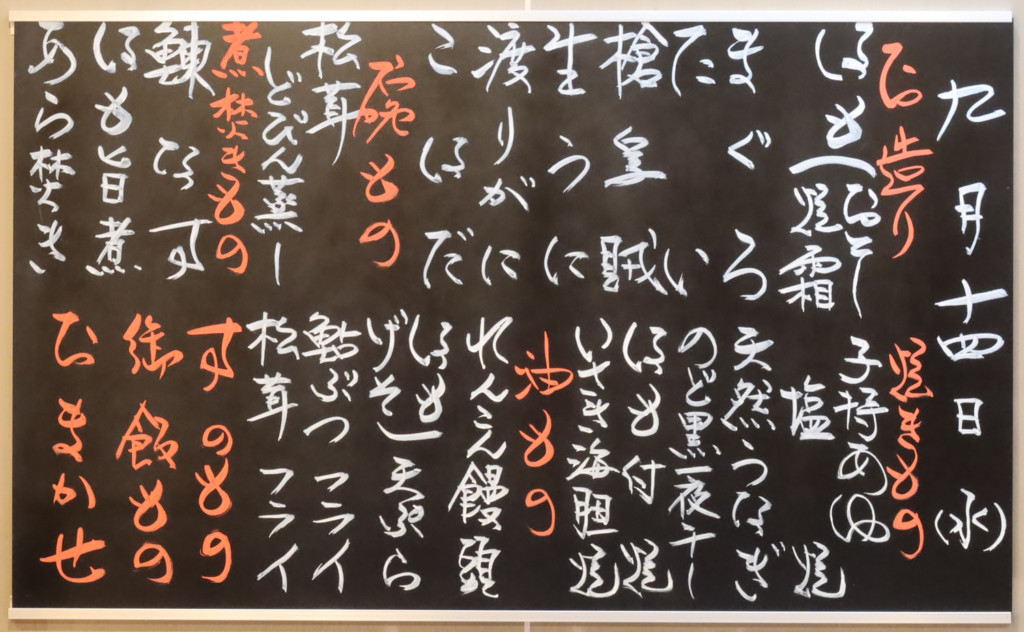 九月十四日(水)
お造り
はも(おとし
焼霜
まぐろ
たい
槍烏賊
生うに
渡りがに
こはだ
椀もの
松茸
どびん蒸し
煮焚きもの
鰊なす
はも旨煮
あら焚き
焼きもの
子持あゆ
塩焼
天然うなぎ
のど黒一夜干し
はも付焼
いさき海胆焼
油もの
れんこん饅頭
はも
げそ 天ぷら
鮎ぶつフライ
松茸フライ
すのもの
御飯もの
おまかせ